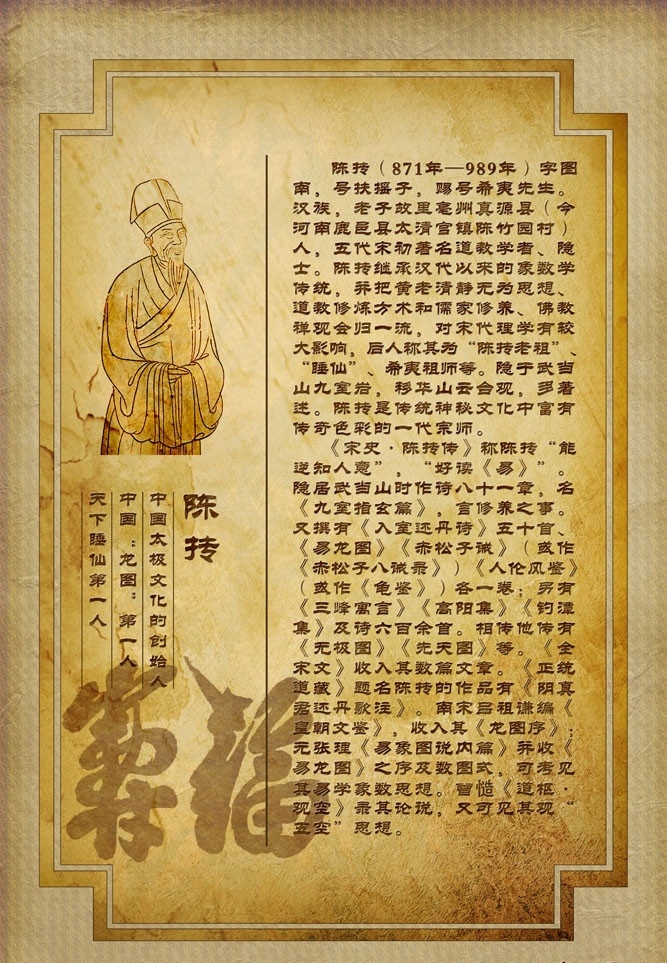 陈抟
中国太极文化的创始人
中国“龙图”第一人
天下睡仙第一人
陈抟（871年—989年）字图
南，号扶摇子，赐号希夷先生。
汉族，老子故里亳州真源县（今
河南鹿邑县太清宫镇陈竹园村）
人，五代宋初著名道教学者、隐
士。陈抟继承汉代以来的象数学
传统，并把黄老清静无为思想、
道教修炼方术和儒家修养、佛教
禅观会归一流，对宋代理学有较
大影响，后人称其为“陈抟老祖”、
“睡仙”、希夷祖师等。隐于武当
山九室岩，移华山云台观，多著
述。陈抟是传统神秘文化中富有
传奇色彩的一代宗师。
《宋史·陈抟传》称陈抟“能
逆知人意”，“好读《易》”。
隐居武当山时作诗八十一章，名
《九室指玄篇》，言修养之事。
又撰有《入室还丹诗》五十首、
《易龙图》《赤松子诫》（或作
《赤松子八诫录》）《人伦风鉴》
（或作《龟鉴》）各一卷；另有
《三峰寓言》《高阳集》《钓潭
集》及诗六百余首。相传他传有
《无极图》《先天图》等。《全
宋文》收入其数篇文章。《正统
道藏》题名陈抟的作品有《阴真
君还丹歌注》。南宋吕祖谦编《
皇朝文鉴》，收入其《龙图序》；
元张理《易象图说内篇》并收《
易龙图》之序及数图式，可考见
其易学象数思想。曾慥《道枢·
观空》录其论说，又可见其观“
五空”思想。